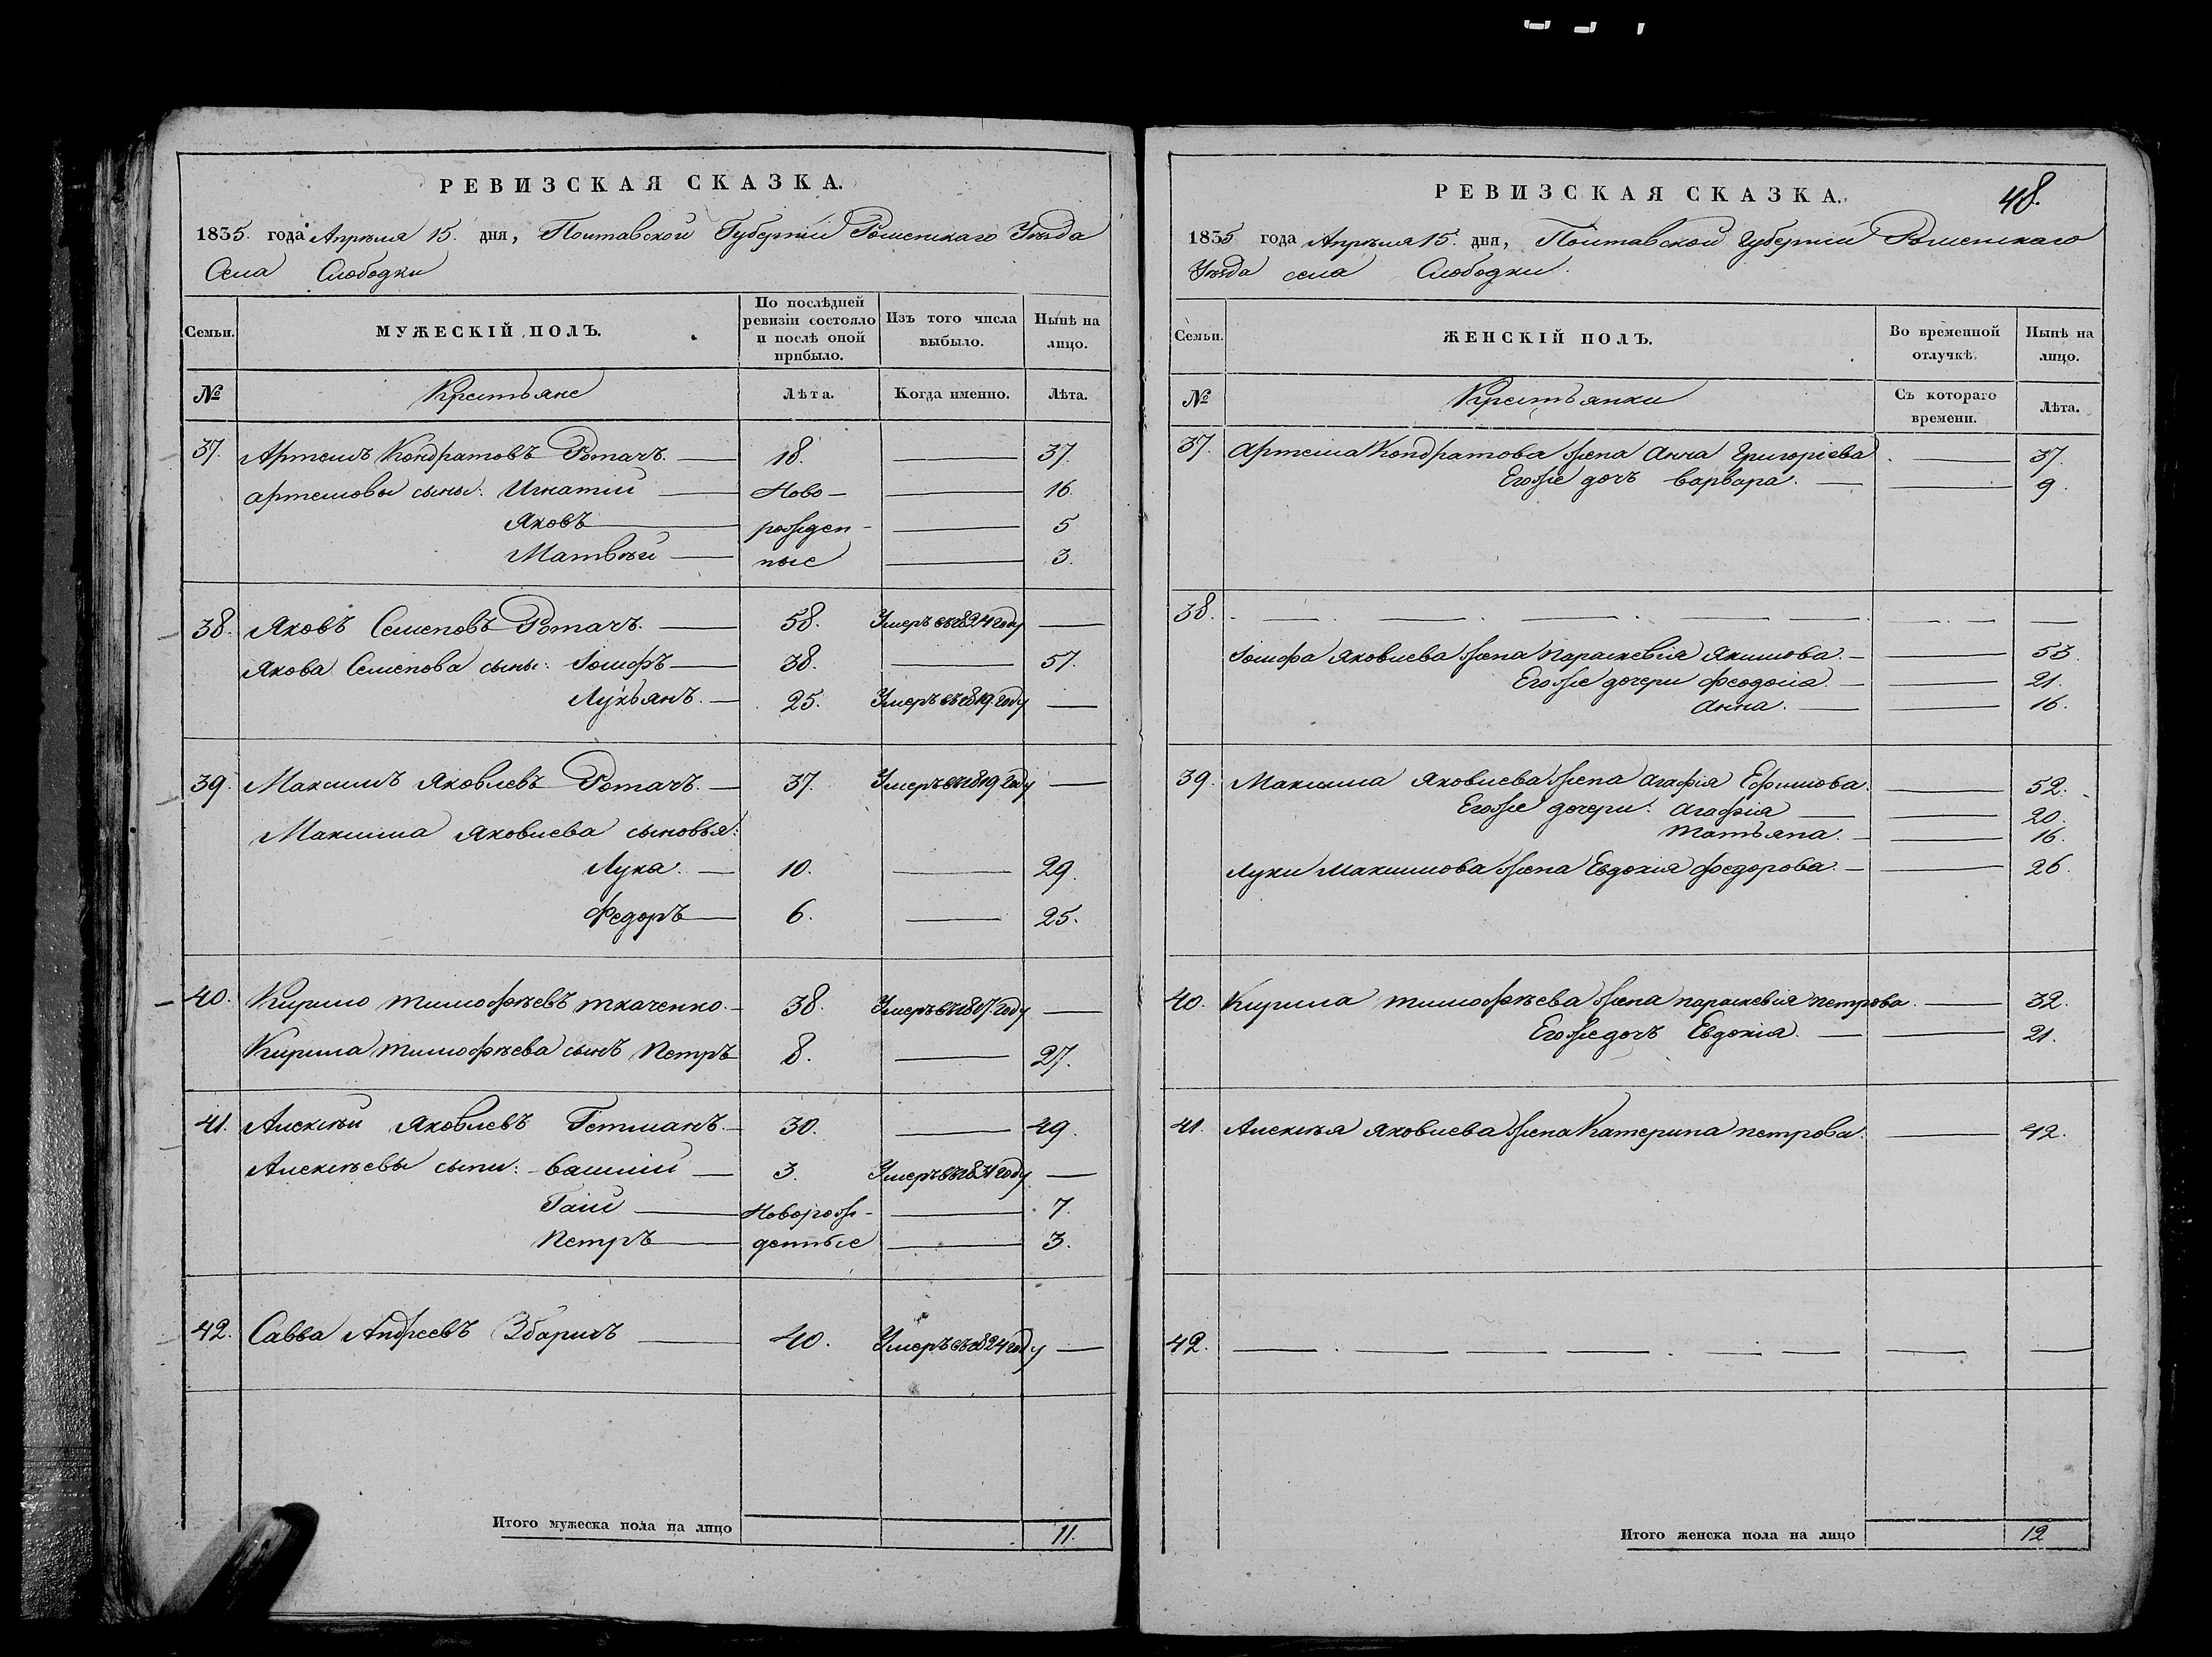 РЕВИЗСКАЯ СКАЗКА.
1835. года Апрѣля 15. дня, Полтавской Губерніи Роменскаго Уѣзда
Села Слободки
Семьи. МУЖЕСКІЙ ПОЛЪ. По послѣдней ревизіи состояло и послѣ оной прибыло. Изъ того числа выбыло. Нынѣ на лицо.
№ Крестьяне Лѣта. Когда именно. Лѣта.
37. Артемъ Кондратовъ Ротачъ. — 18. — 37.
Артемовы сыны: Игнатій — Ново- — 16.
Яковъ — рожден- — 5
Матвѣй — ные — 3.
38. Яковъ Семеновъ Ротачъ. — 58. Умеръ въ 1824 году —
Якова Семенова сыны: Іосифъ — 38. — 57.
Лукьянъ. — 25. Умеръ въ 1819. году —
39. Максимъ Яковлевъ Ротачъ. — 37. Умеръ въ 1819 году —
Максима Яковлева сыновья:
Лука. — 10. — 29.
Федоръ — 6. — 25.
40. Кирило Тимофѣевъ Ткаченко. — 38. Умеръ въ году —
Кирила Тимофѣева сынъ Петръ 8. — 27.
41. Алексѣй Яковлевъ Гетманъ. — 30. — 49.
Алексѣевы сыны: Василій — 3. Умеръ въ 1831 году —
Новорож- — 7.
Петръ — денные — 3.
42. Савва Андреевъ — 40. Умеръ въ 1824 году —
Итого мужеска пола на лицо 11.
РЕВИЗСКАЯ СКАЗКА. 48.
1835 года Апрѣля 15. дня, Полтавской Губерніи Роменскаго
Уѣзда села Слободки.
Семьи. ЖЕНСКІЙ ПОЛЪ. Во временной отлучкѣ. Нынѣ на лицо.
№ Крестьянки Съ котораго времени. Лѣта.
37. Артема Кондратова жена Анна Григоріева — 37.
Егоже дочь Варвара. — 9.
38. — — —
Іосифа Яковлева жена Параскевія Якимова. — 53.
Егоже дочери Феодосія. — 21.
Анна. — 16.
39. Максима Яковлева жена Агафія Ефимова. — 52.
Егоже дочери: Агафія — 20.
Татьяна. — 16.
Луки Максимова жена Евдокія Федорова. — 26.
40. Кирила Тимофѣева жена Параскевія Петрова. — 32.
Егоже дочь Евдокія. — 21.
41. Алексѣя Яковлева жена Катерина Петрова. — 42.
42. — — —
Итого женска пола на лицо 12